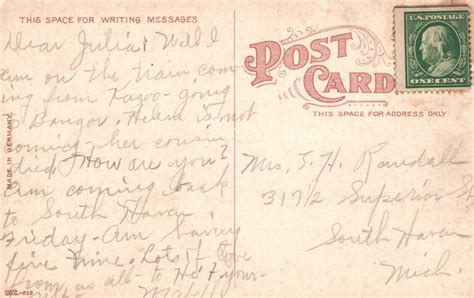 THIS SPACE FOR WRITING MESSAGES
Dear Julia: Well I
am on the train com
ing from Kazoo-going
to Bangor. Helen is not
coming, her cousin
died. How are you?
Am coming back
to South Haven
Friday-Am having
fine time. Lots of love
from us all- to
MADE IN GERMANY.
POST
CARD
THIS SPACE FOR ADDRESS ONLY
U.S. POSTAGE
ONE CENT
Mrs. J. H. Randall
317½ Superior St
South Haven
Mich.